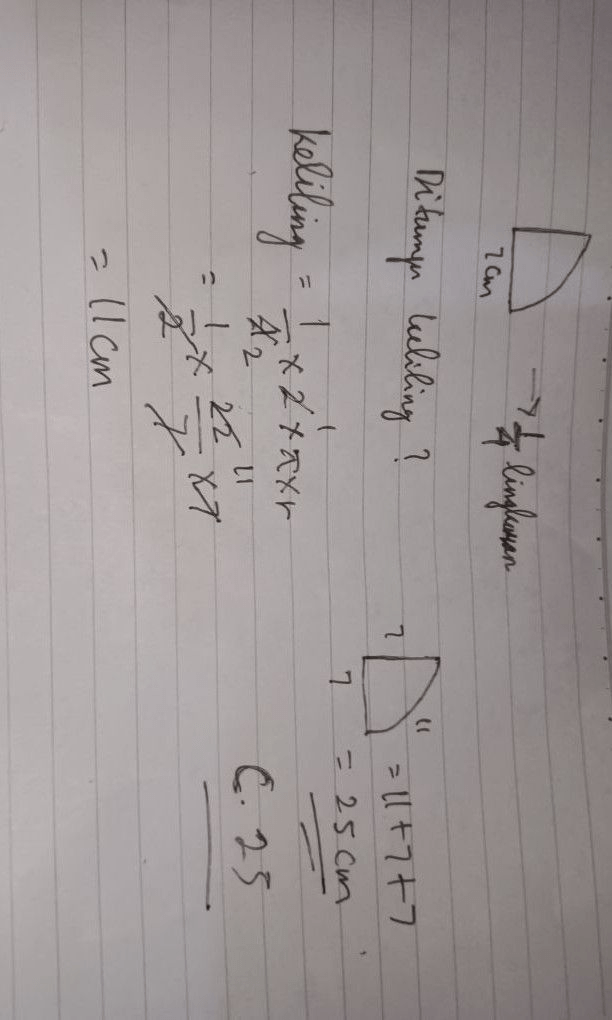 7 cm → 1/4 lingkaran
Ditanya keliling ?
Keliling = 1/4 2 × 2 1 × π × r
= 1/2 × 22 11 / 7 × 7
= 11 cm
7 11 = 11 + 7 + 7
7 = 25 cm
C. 25